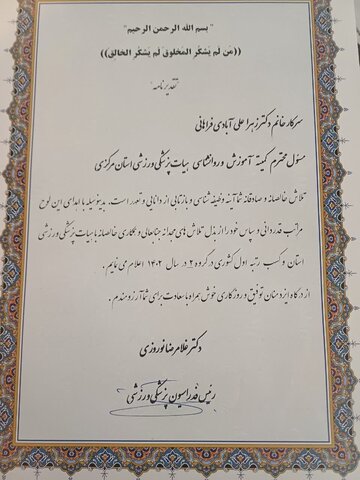 " بسم الله الرحمن الرحیم "
((مَن لَم یَشکُر المَخلوق لَم یَشکُر الخالِق))
"تقدیرنامه"
سرکار خانم دکتر زهرا علی آبادی فراهانی
مسئول محترم کمیته آموزش و روانشناسی هیات پزشکی ورزشی استان مرکزی
تلاش خالصانه و صادقانه شما آینه وظیفه شناسی و بازتابی از دانایی و تعهد است. بدینوسیله با اهدای این لوح
مراتب قدردانی و سپاس خود را از بذل تلاش های مجدانه جنابعالی و همکاری خالصانه با هیات پزشکی ورزشی
استان و کسب رتبه اول کشوری در گروه ۲ در سال ۱۴۰۲ اعلام می نمایم.
از درگاه ایزد منان توفیق و روزگاری خوش همراه با سعادت برای شما آرزومندم.
دکتر غلامرضا نوروزی
رئیس فدراسیون پزشکی ورزشی